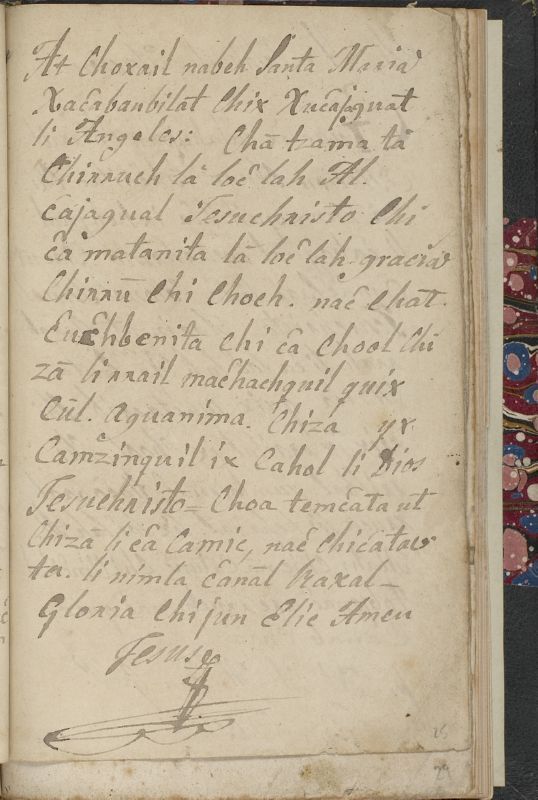 At Choxail nabeh Santa Maria
Xacabanbilat Chix Xucajaquat
li Angeles: Chā tzama ta
Chirruch la loc̄ lah Al.
Cajagual Jesuchristo Chi
c̄a matanita la loc̄ lah gracia
Chirrū Chi Choch. nac̄ Chat.
Euchbenita Chi c̄a Chool Chi
zā li rrail mac̄hachquil quix
Cūl. aquanima. Chizá yx
Camzinquil ix Cahol li Dios
Jesuchristo = Choa temc̄ata ut
Chizā li c̄a Camic, nac̄ Chicatau
ta. li nimla c̄anāl Raxal_
Gloria Chijun Elic Amen
Jesus
25
29